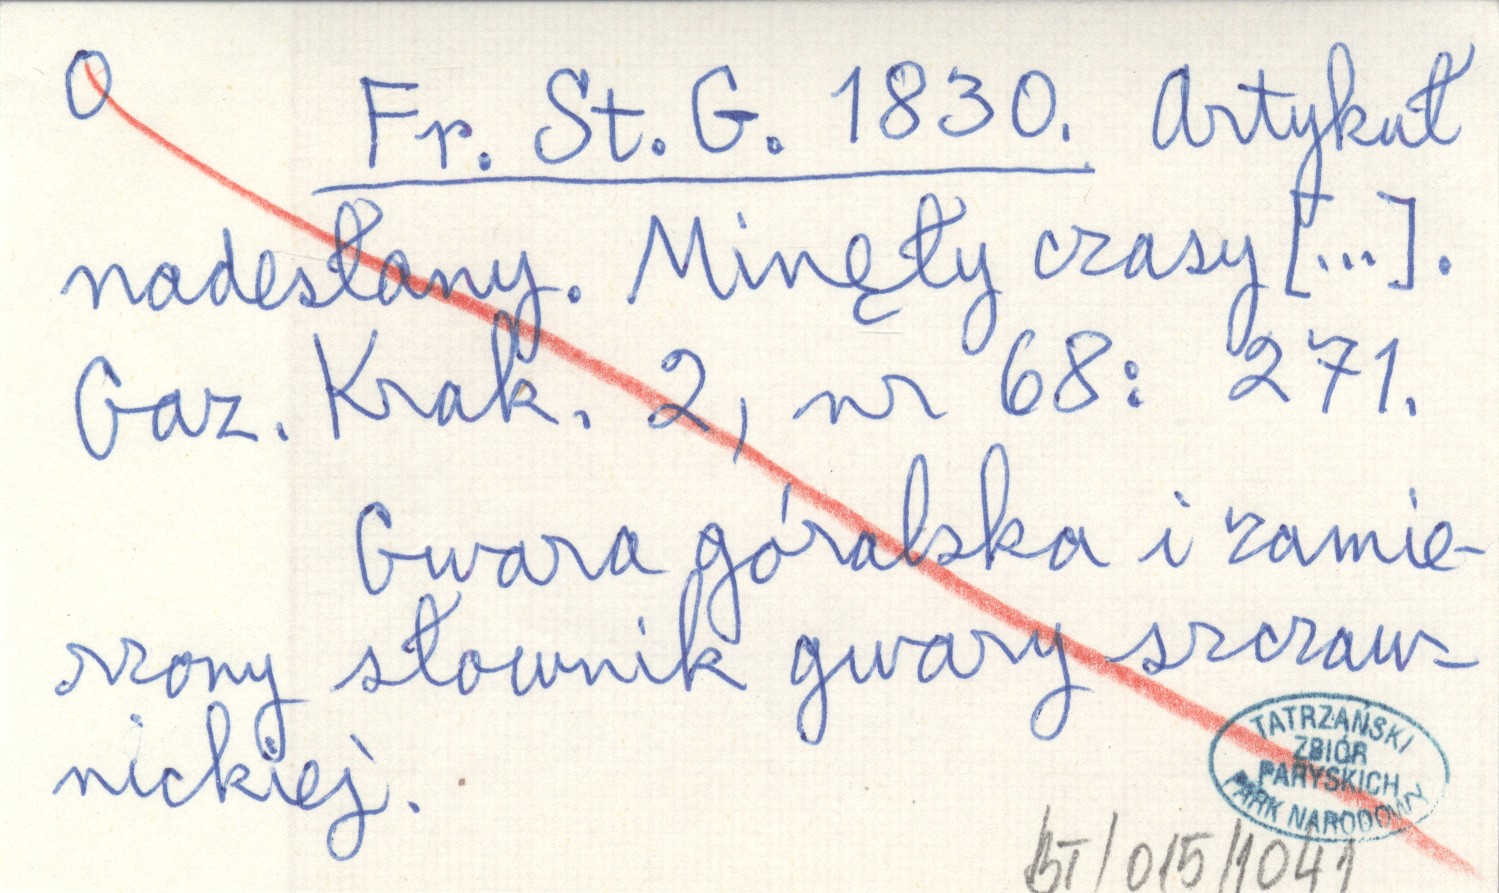 O Fr. St. G. 1830. Artykuł
nadesłany. Minęły czasy [...].
Gaz. Krak. 2, nr 68: 271.
Gwara góralska i zamie-
rzony słownik gwary szczaw-
nickiej.
TATRZAŃSKI
ZBIÓR
PARYSKICH
PARK NARODOWY
/BT/015/1041